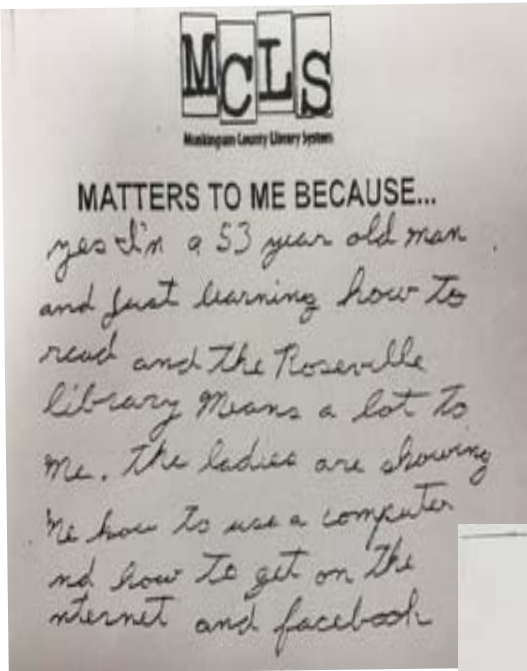 MCLS
Muskingum County Library System
MATTERS TO ME BECAUSE...
yes I'm a 53 year old man
and just learning how to
read and the Roseville
library Means a lot to
Me. the ladies are showing
me how to use a computer
nd how to get on the
nternet and facebook